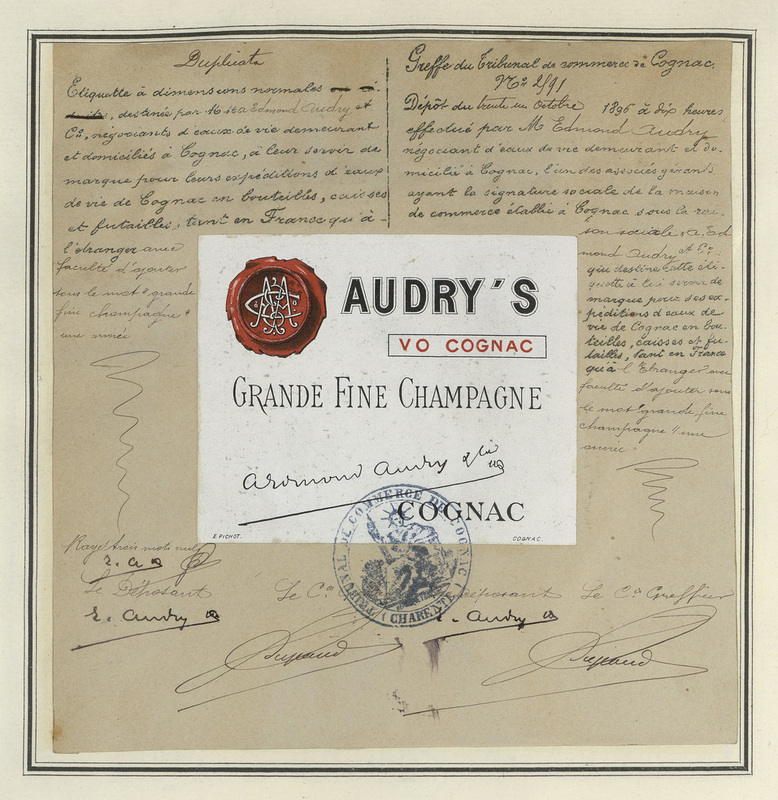 Duplicata
Etiquette à dimensions normales
destinée par M
Edmond Audry et
Cie, négociants d'eaux de vie demeurant
et domiciliés à Cognac, à leur servir de
marque pour leurs expéditions d'eaux
de vie de Cognac en bouteilles, caisses
et futailles, tant en France qu'à
l'étranger avec
faculté d'ajouter
sous le mot "grande
fine champagne"
une année
Rayé trois mots nuls
E. A
Le Déposant
E. Audry
Greffe du Tribunal de commerce de Cognac.
No 2/91
Dépôt du trente un octobre 1896 à dix heures
effectué par M Edmond Audry
négociant d'eaux de vie demeurant et do-
micilié à Cognac, l'un des associés gérants
ayant la signature sociale de la maison
de commerce établie à Cognac sous la rai-
son sociale, A, Ed
mond Audry et Cie
que destine cette éti-
quette à lui servir de
marque pour ses ex-
péditions d'eaux de
vie de Cognac en bou-
teilles, caisses et fu-
tailles, tant en France
qu'à l'Etranger avec
faculté d'ajouter sous
le mot "grande fine
champagne" une
année.
AUDRY'S
VO COGNAC
GRANDE FINE CHAMPAGNE
Edmond Audry & Cie
COGNAC
E. PICHOT.
COGNAC.
TRIBUNAL DE COMMERCE DE COGNAC
(CHARENTE)
Le Cis
déposant
Le Cis Greffier
E. Audry